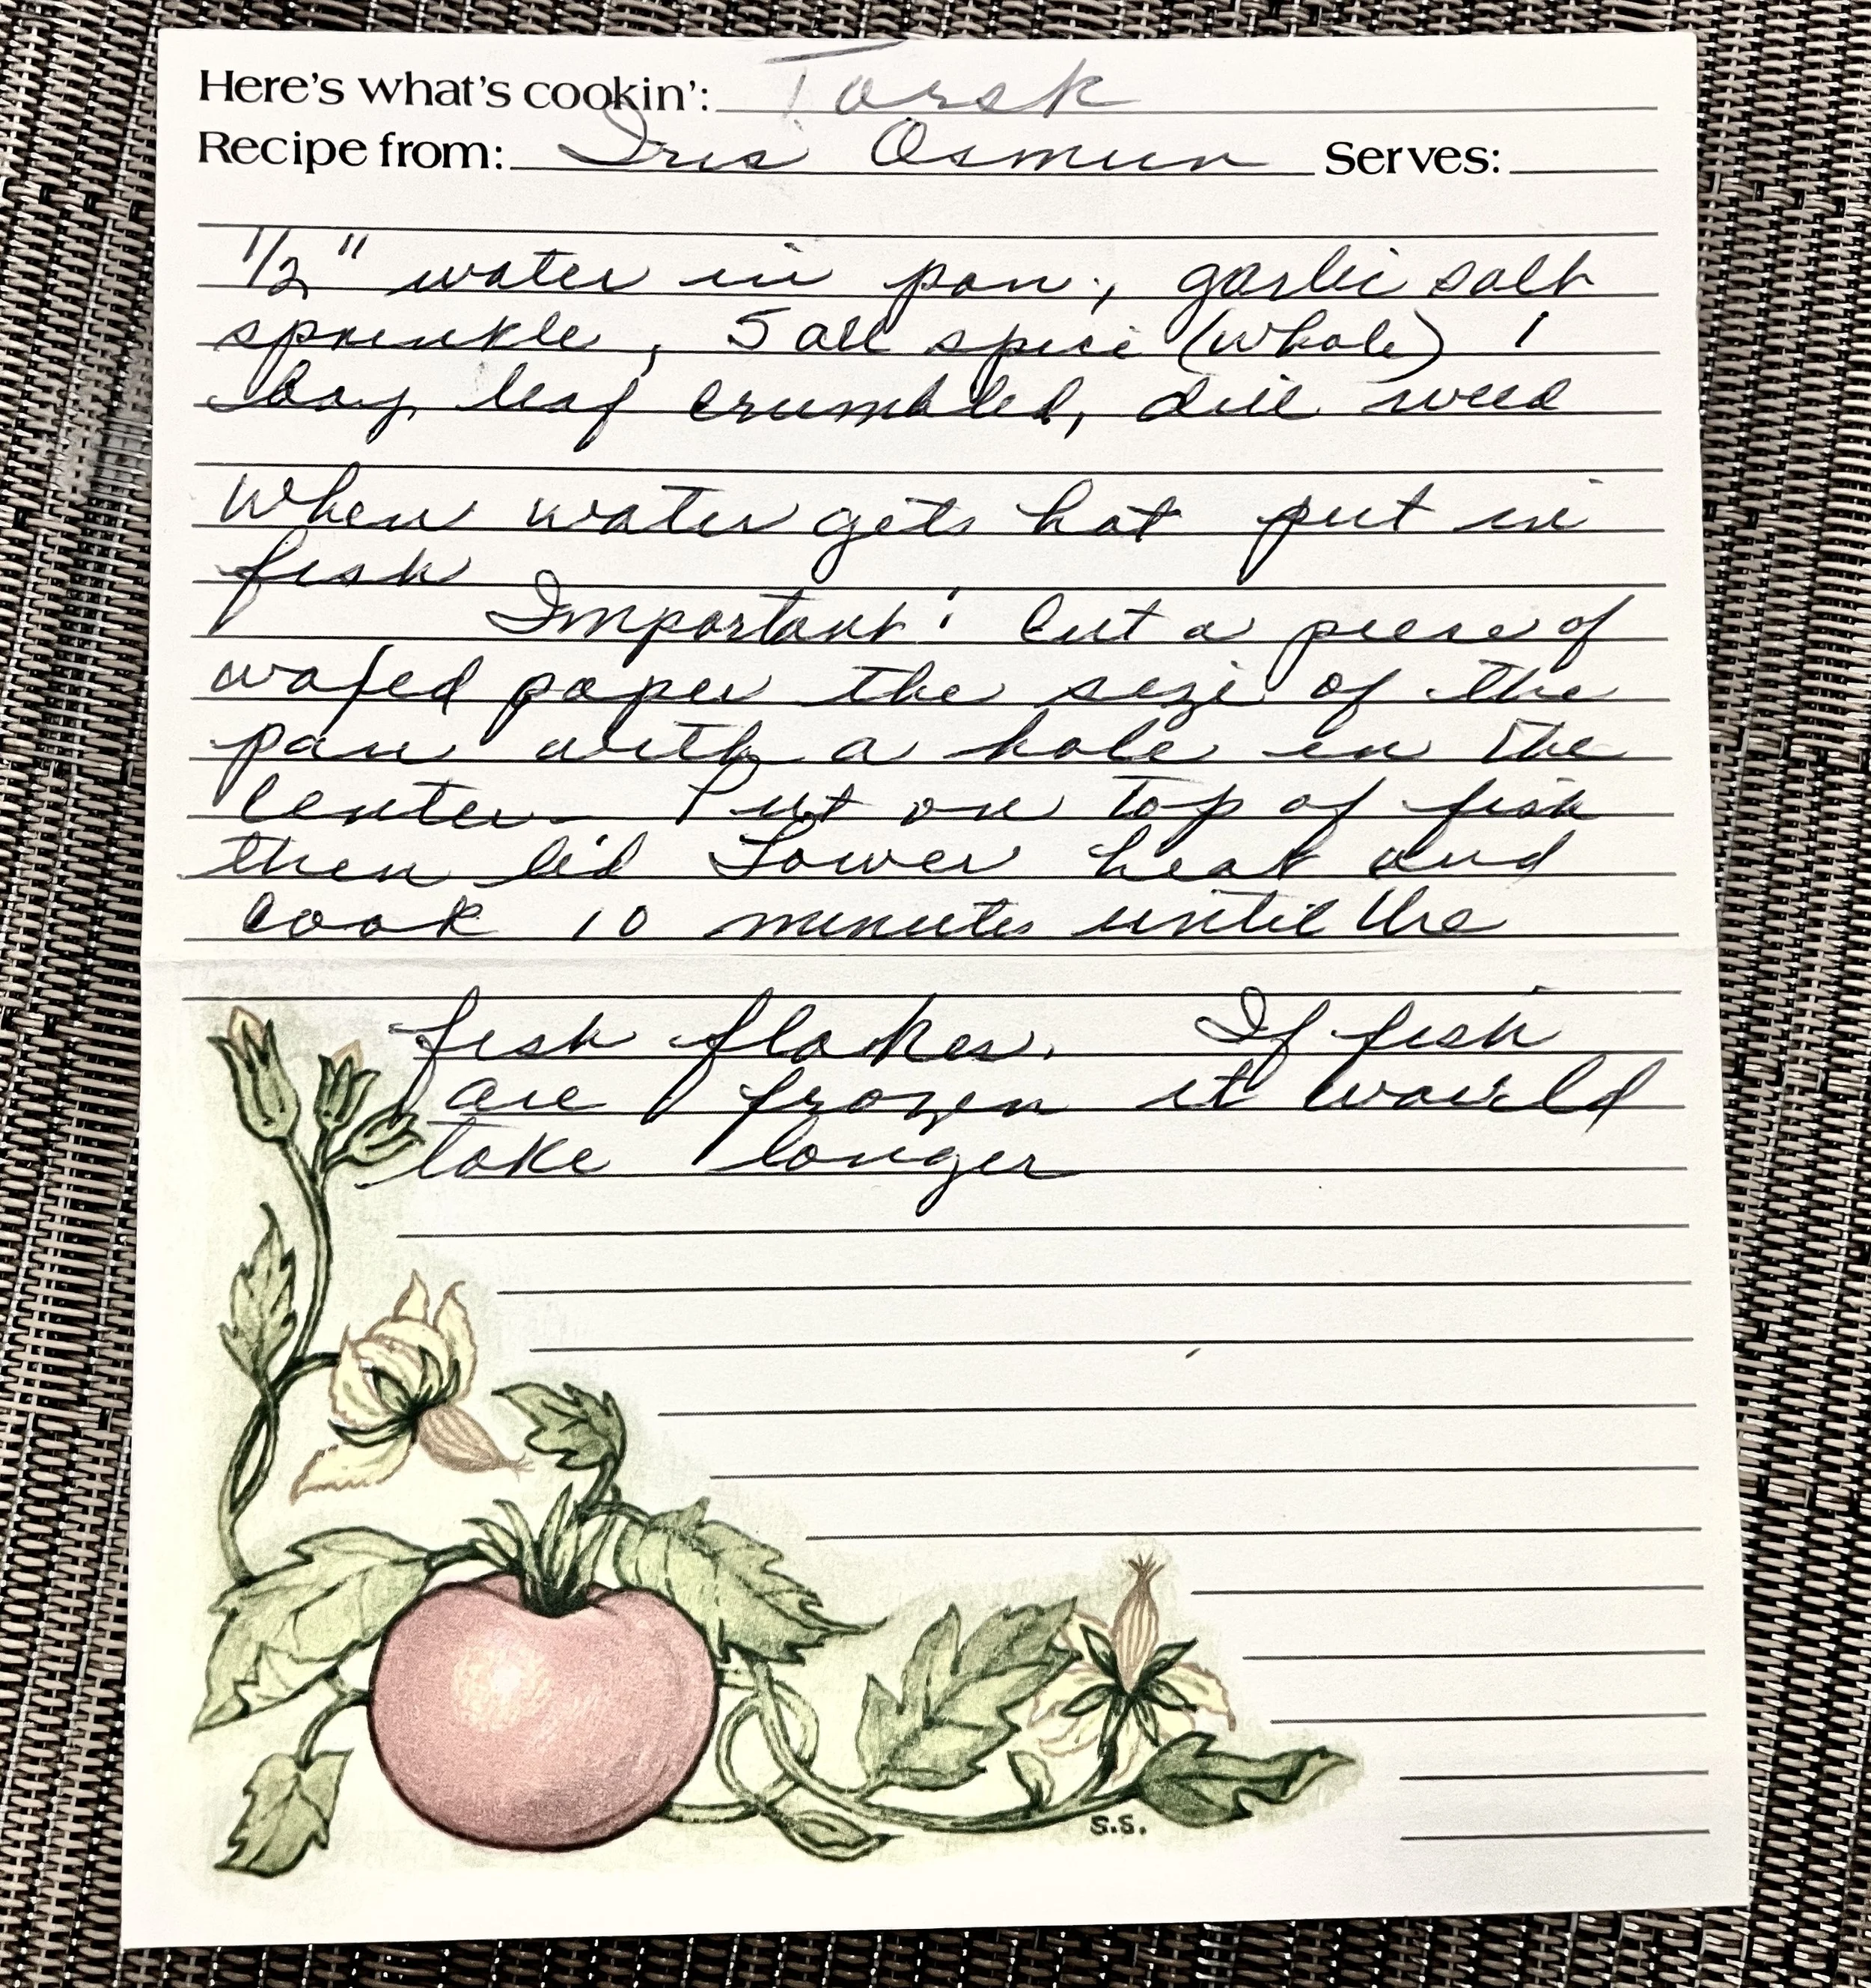 Here's what's cookin': Torsk
Recipe from: Iris Osmun Serves:
1/2" water in pan, garlic salt
sprinkle, 5 all spice (whole) 1
bay leaf crumbled, dill weed
When water gets hot put in
fish
Important: Cut a piece of
waxed paper the size of the
pan with a hole in the
center - Put on top of fish
then lid Lower heat and
cook 10 minutes until the
fish flakes. If fish
are frozen it would
take longer
S.S.